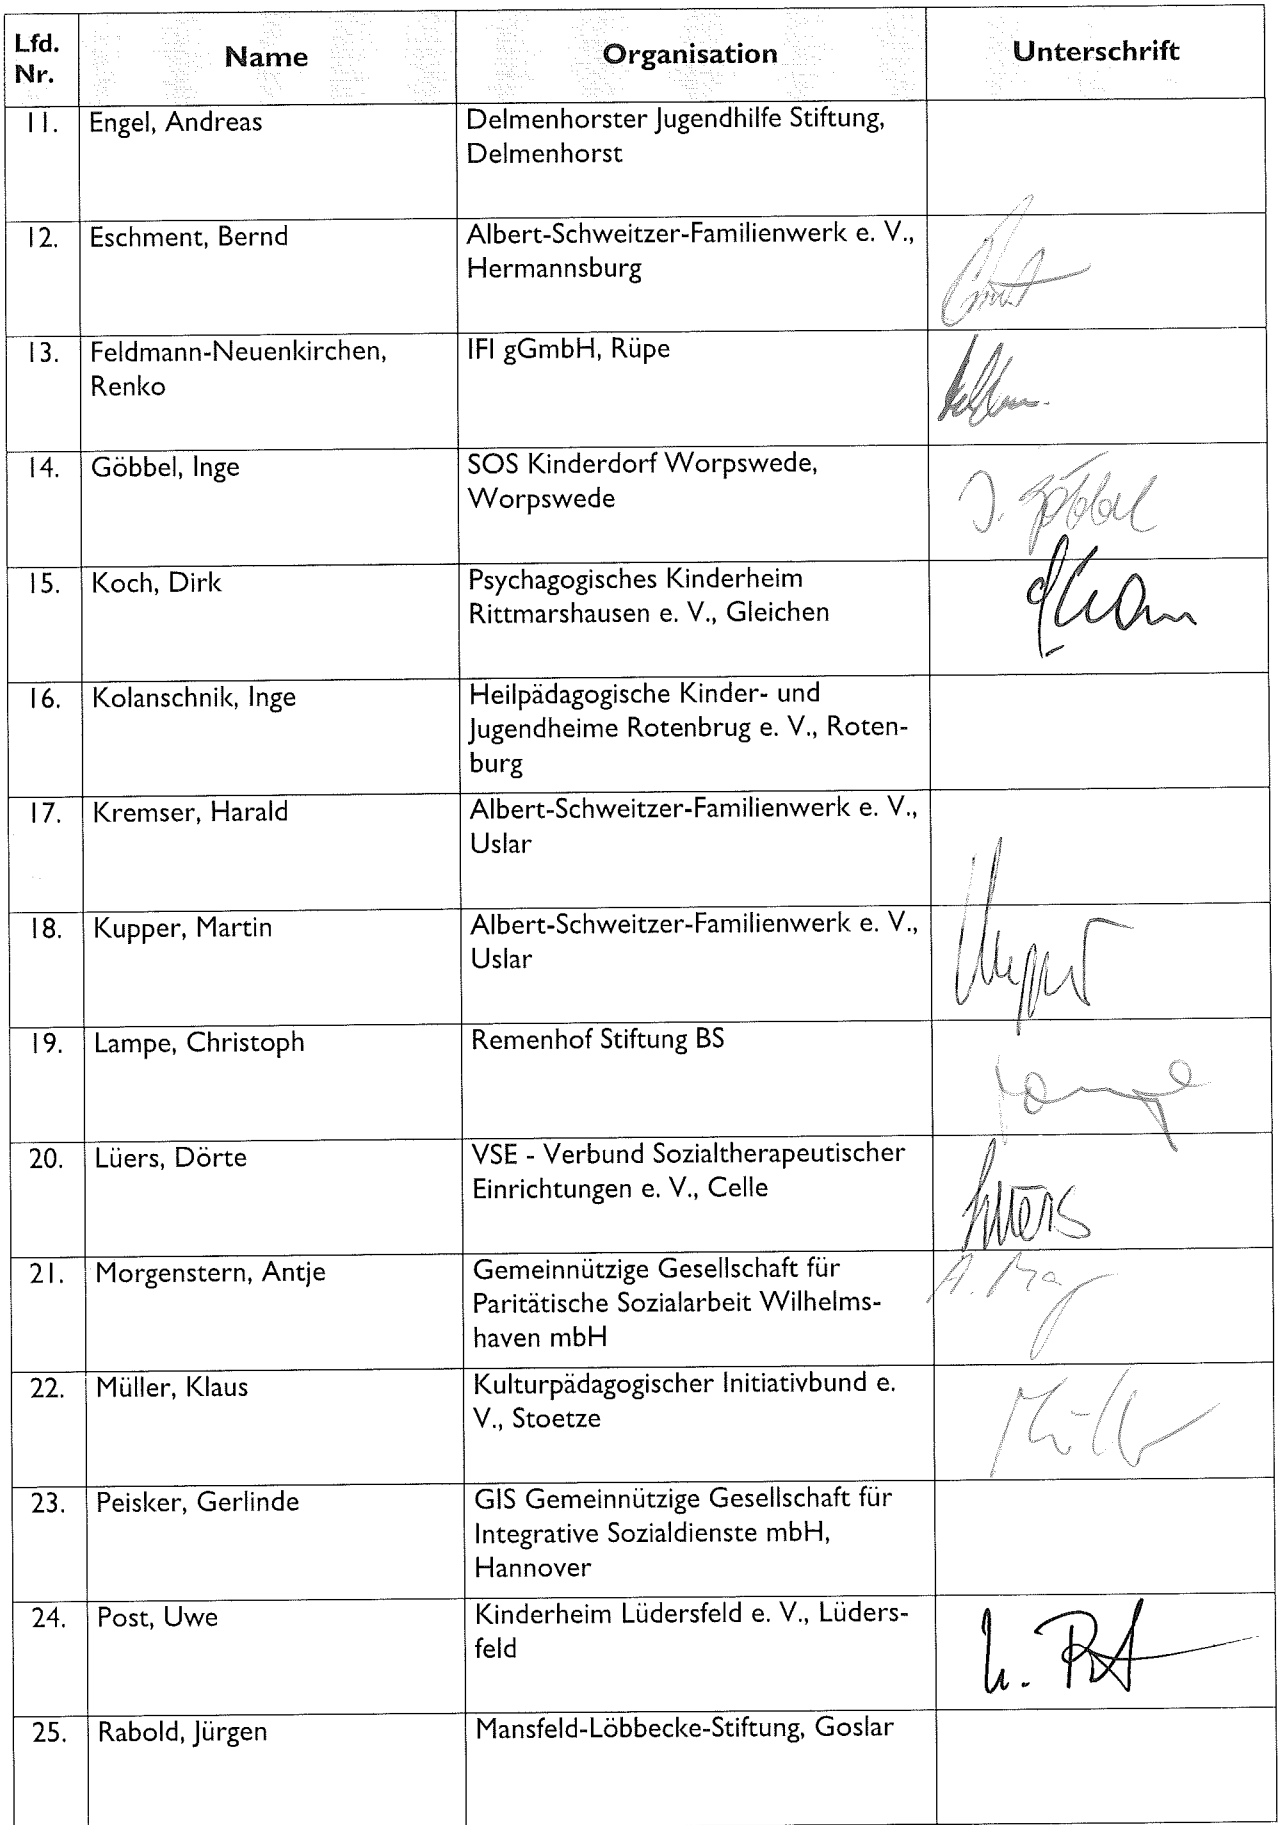 Lfd. Nr. Name Organisation Unterschrift
11. Engel, Andreas Delmenhorster Jugendhilfe Stiftung,
Delmenhorst
12. Eschment, Bernd Albert-Schweitzer-Familienwerk e. V.,
Hermannsburg
13. Feldmann-Neuenkirchen, IFI gGmbH, Rüpe
Renko
14. Göbbel, Inge SOS Kinderdorf Worpswede,
Worpswede
I. Göbbel
15. Koch, Dirk Psychagogisches Kinderheim
Rittmarshausen e. V., Gleichen
16. Kolanschnik, Inge Heilpädagogische Kinder- und
Jugendheime Rotenbrug e. V., Roten-
burg
17. Kremser, Harald Albert-Schweitzer-Familienwerk e. V.,
Uslar
18. Kupper, Martin Albert-Schweitzer-Familienwerk e. V.,
Uslar
19. Lampe, Christoph Remenhof Stiftung BS
20. Lüers, Dörte VSE - Verbund Sozialtherapeutischer
Einrichtungen e. V., Celle
Lüers
21. Morgenstern, Antje Gemeinnützige Gesellschaft für
Paritätische Sozialarbeit Wilhelms-
haven mbH
22. Müller, Klaus Kulturpädagogischer Initiativbund e.
V., Stoetze
23. Peisker, Gerlinde GIS Gemeinnützige Gesellschaft für
Integrative Sozialdienste mbH,
Hannover
24. Post, Uwe Kinderheim Lüdersfeld e. V., Lüders-
feld
25. Rabold, Jürgen Mansfeld-Löbbecke-Stiftung, Goslar